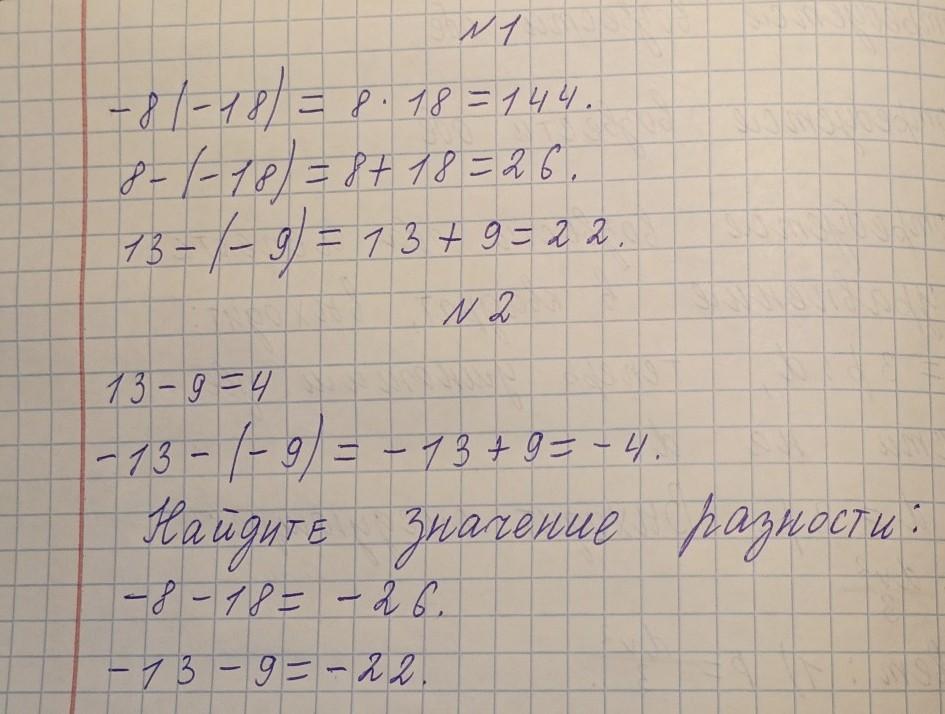 N1
-8(-18) = 8 · 18 = 144.
8-(-18) = 8+18 = 26.
13-(-9) = 13+9 = 22.
N2
13-9=4
-13-(-9) = -13+9 = -4.
Найдите значение разности:
-8-18 = -26.
-13-9 = -22.